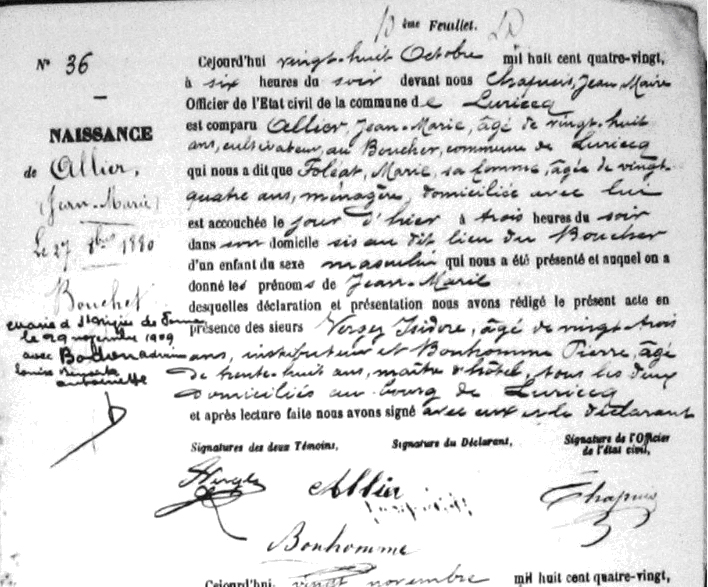 ème Feuillet.
N° 36
NAISSANCE
de Allier,
(Jean-Marie)
Le 27 8bre 1880
Bouchet
marié à
le 29 novembre 1909
avec
Louise
antoinette
Cejourd'hui vingt-huit Octobre mil huit cent quatre-vingt,
à six heures du soir devant nous Chapuis, Jean-Marie
Officier de l'Etat civil de la commune de Luriecq
est comparu Allier, Jean-Marie, âgé de vingt-huit
ans, cultivateur, au Boucher, commune de Luriecq
qui nous a dit que Foléat, Marie, sa femme, âgée de vingt-
quatre ans, ménagère, domiciliée avec lui
est accouchée le jour d'hier à trois heures du soir
dans son domicile sis au dit lieu du Boucher
d'un enfant du sexe masculin qui nous a été présenté et auquel on a
donné les prénoms de Jean-Marie
desquelles déclaration et présentation nous avons rédigé le présent acte en
présence des sieurs Verger Isidore, âgé de vingt-trois
ans, instituteur et Bonhomme Pierre, âgé
de trente-huit ans, maître d'hôtel, tous les deux
domiciliés au bourg de Luriecq
et après lecture faite nous avons signé avec eux et le déclarant
Signatures des deux Témoins, Signature du Déclarant, Signature de l'Officier
de l'état civil,
Allier Chapuis
Bonhomme
Cejourd'hui, vingt novembre mil huit cent quatre-vingt,